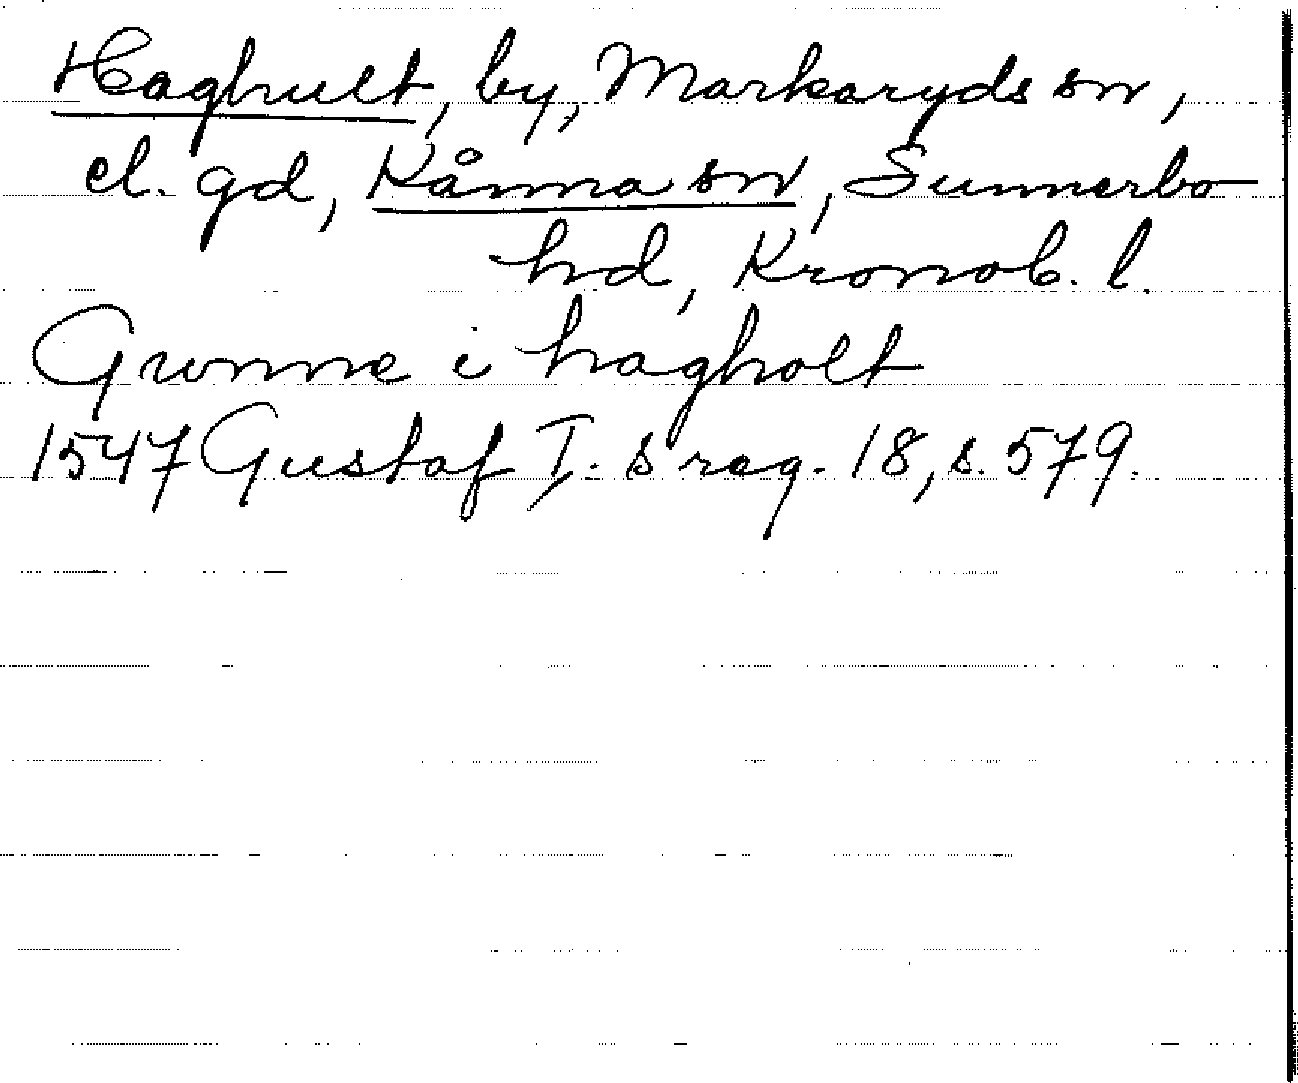 Haghult, by, Markaryds sn,
el. gd, Kånna sn, Sunnerbo
hd, Kronob. l.
Gunne i hagholt
1547 Gustaf I. s reg. 18, s. 579.